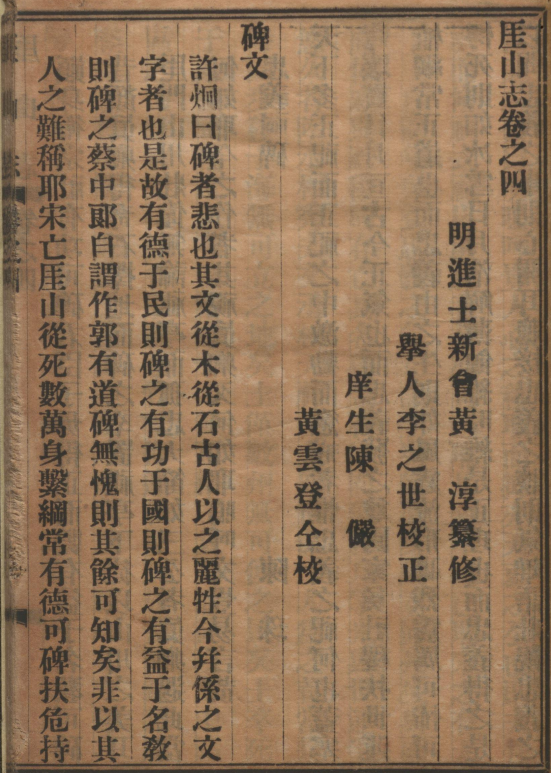 厓山志卷之四
明進士新會黃　淳纂修
舉人李之世校正
庠生陳　儼
黃雲登仝校
碑文
許炯曰碑者悲也其文從木從石古人以之麗牲今幷係之文
字者也是故有德于民則碑之有功于國則碑之有益于名敎
則碑之蔡中郞自謂作郭有道碑無愧則其餘可知矣非以其
人之難稱耶宋亡厓山從死數萬身繫綱常有德可碑扶危持